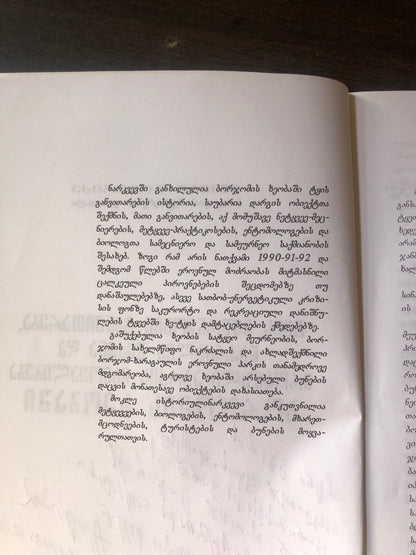 ნარკვევში განხილულია ბორჯომის ხეობაში ტყის
განვითარების ისტორია, საუბარია დარგის ობიექტთა
შექმნის, მათი განვითარების, აქ მომუშავე მეტყევე-მეც-
ნიერების, მეტყევე-პრაქტიკოსების, ენტომოლოგების და
ბიოლოგთა სამეცნიერო და სამეურნეო საქმიანობის
შესახებ. ზოგი რამ არის ნათქვამი 1990-91-92 და
შემდგომ წლებში ეროვნულ მოძრაობას მიტმასნილი
ცალკეული პიროვნებების შეცდომებზე თუ
დანაშაულებებზე, ასევე სათბობ-ენერგეტიკული კრიზი-
სის ფონზე საკურორტო და რეკრეაციული დანიშნუ-
ლების ტყეებში ხე-ტყის დამტაცებლების ქმედებებზე.
გაშუქებულია ხეობის სატყეო მეურნეობის, ბორ-
ჯომის სახელმწიფო ნაკრძალის და ახლადშექმნილი
ბორჯომ-ხარაგაულის ეროვნული პარკის თანამედროვე
მდგომარეობა, აგრეთვე ხეობაში არსებული ბუნების
დაცვის მონათესავე ობიექტების დახასიათება.
მოკლე ისტორიულინარკვევი განკუთვნილია
მეტყევეების, ბიოლოგების, ენტომოლოგების, მხარეთ-
მცოდნეების, ტურისტების და ბუნების მოყვა-
რულთათვის.